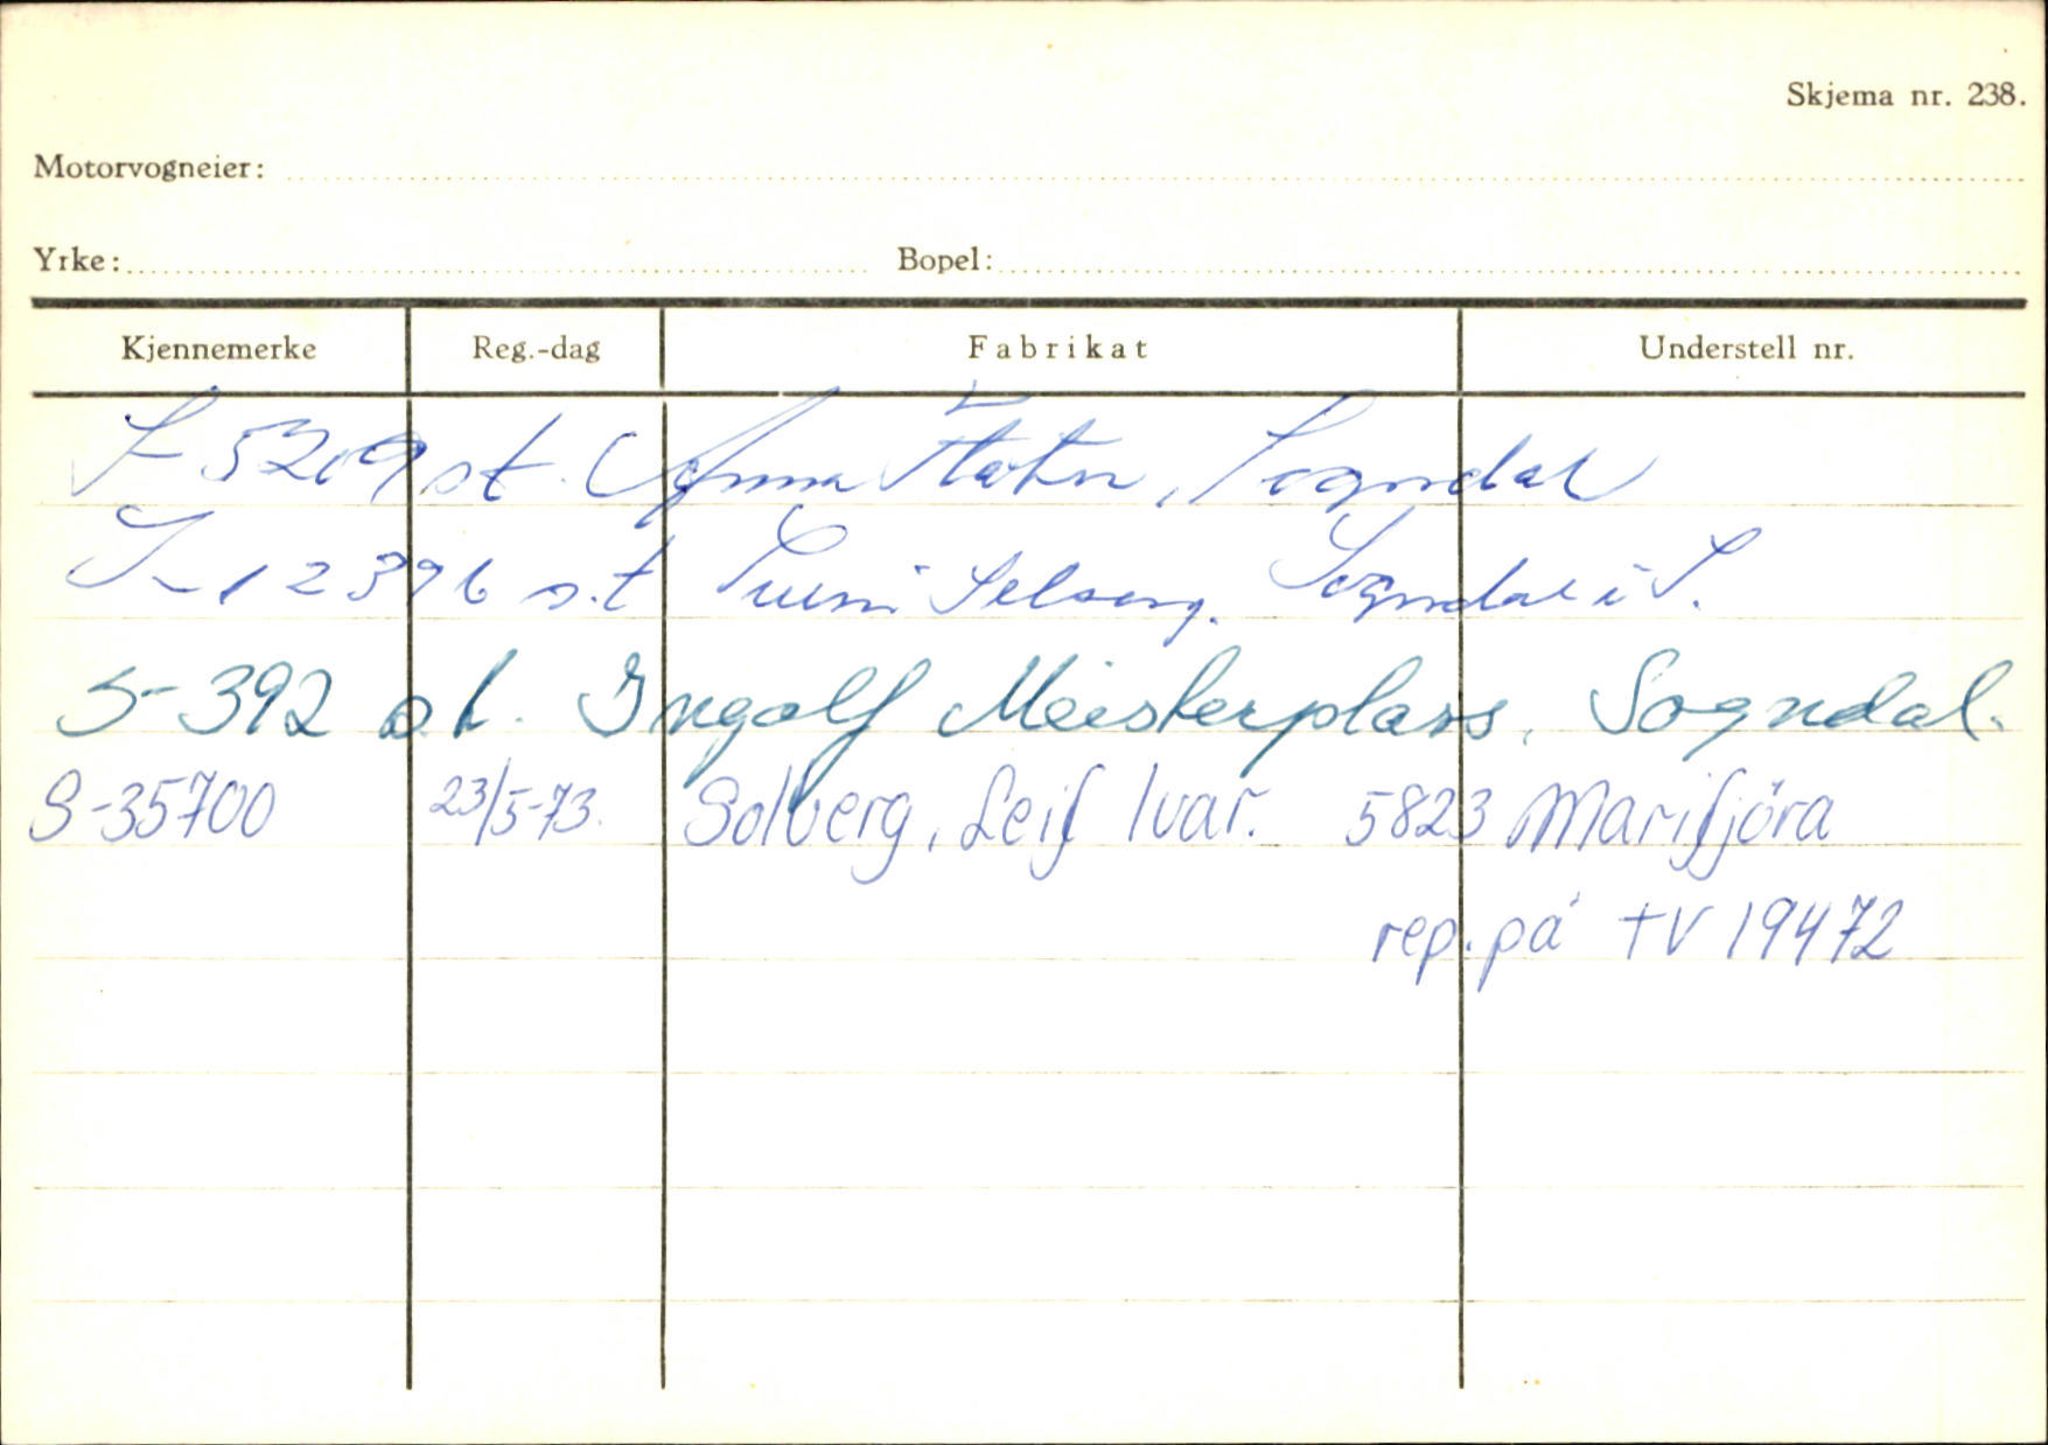 Skjema nr. 238.
Motorvogneier:
Yrke: Bopel:
Kjennemerke Reg.-dag Fabrikat Understell nr.
S-5209 st. Anna Sogndal
S-12396 s.t Selseng. Sogndal i S.
S-392 s.t. Ingolf Meisterplass, Sogndal.
S-35700 23/5-73. Solberg, Leif Ivar. 5823 Marifjöra
rep. på TV 19472